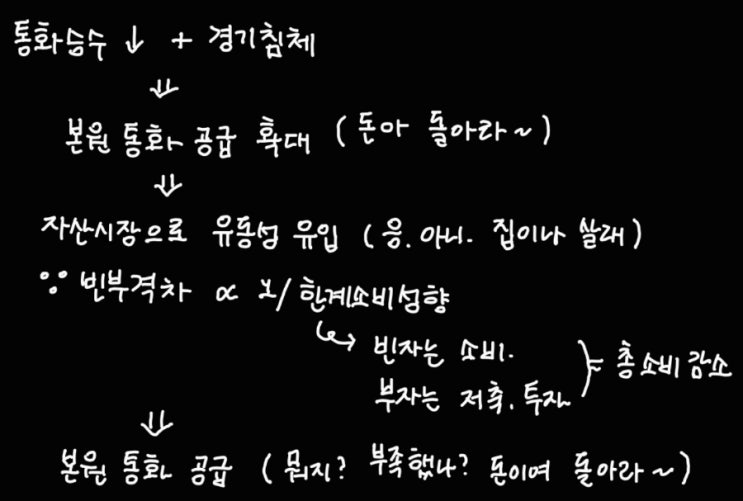 통화승수 ↓ + 경기침체
⇓
본원 통화 공급 확대 (돈아 돌아라~)
⇓
자산시장으로 유동성 유입 (응. 아니. 집이나 살래)
∵ 빈부격차 ∝ 1/한계소비성향
↪ 빈자는 소비.
부자는 저축. 투자 } = 총소비 감소
⇓
본원 통화 공급 (뭐지? 부족했나? 돈이여 돌아라~)